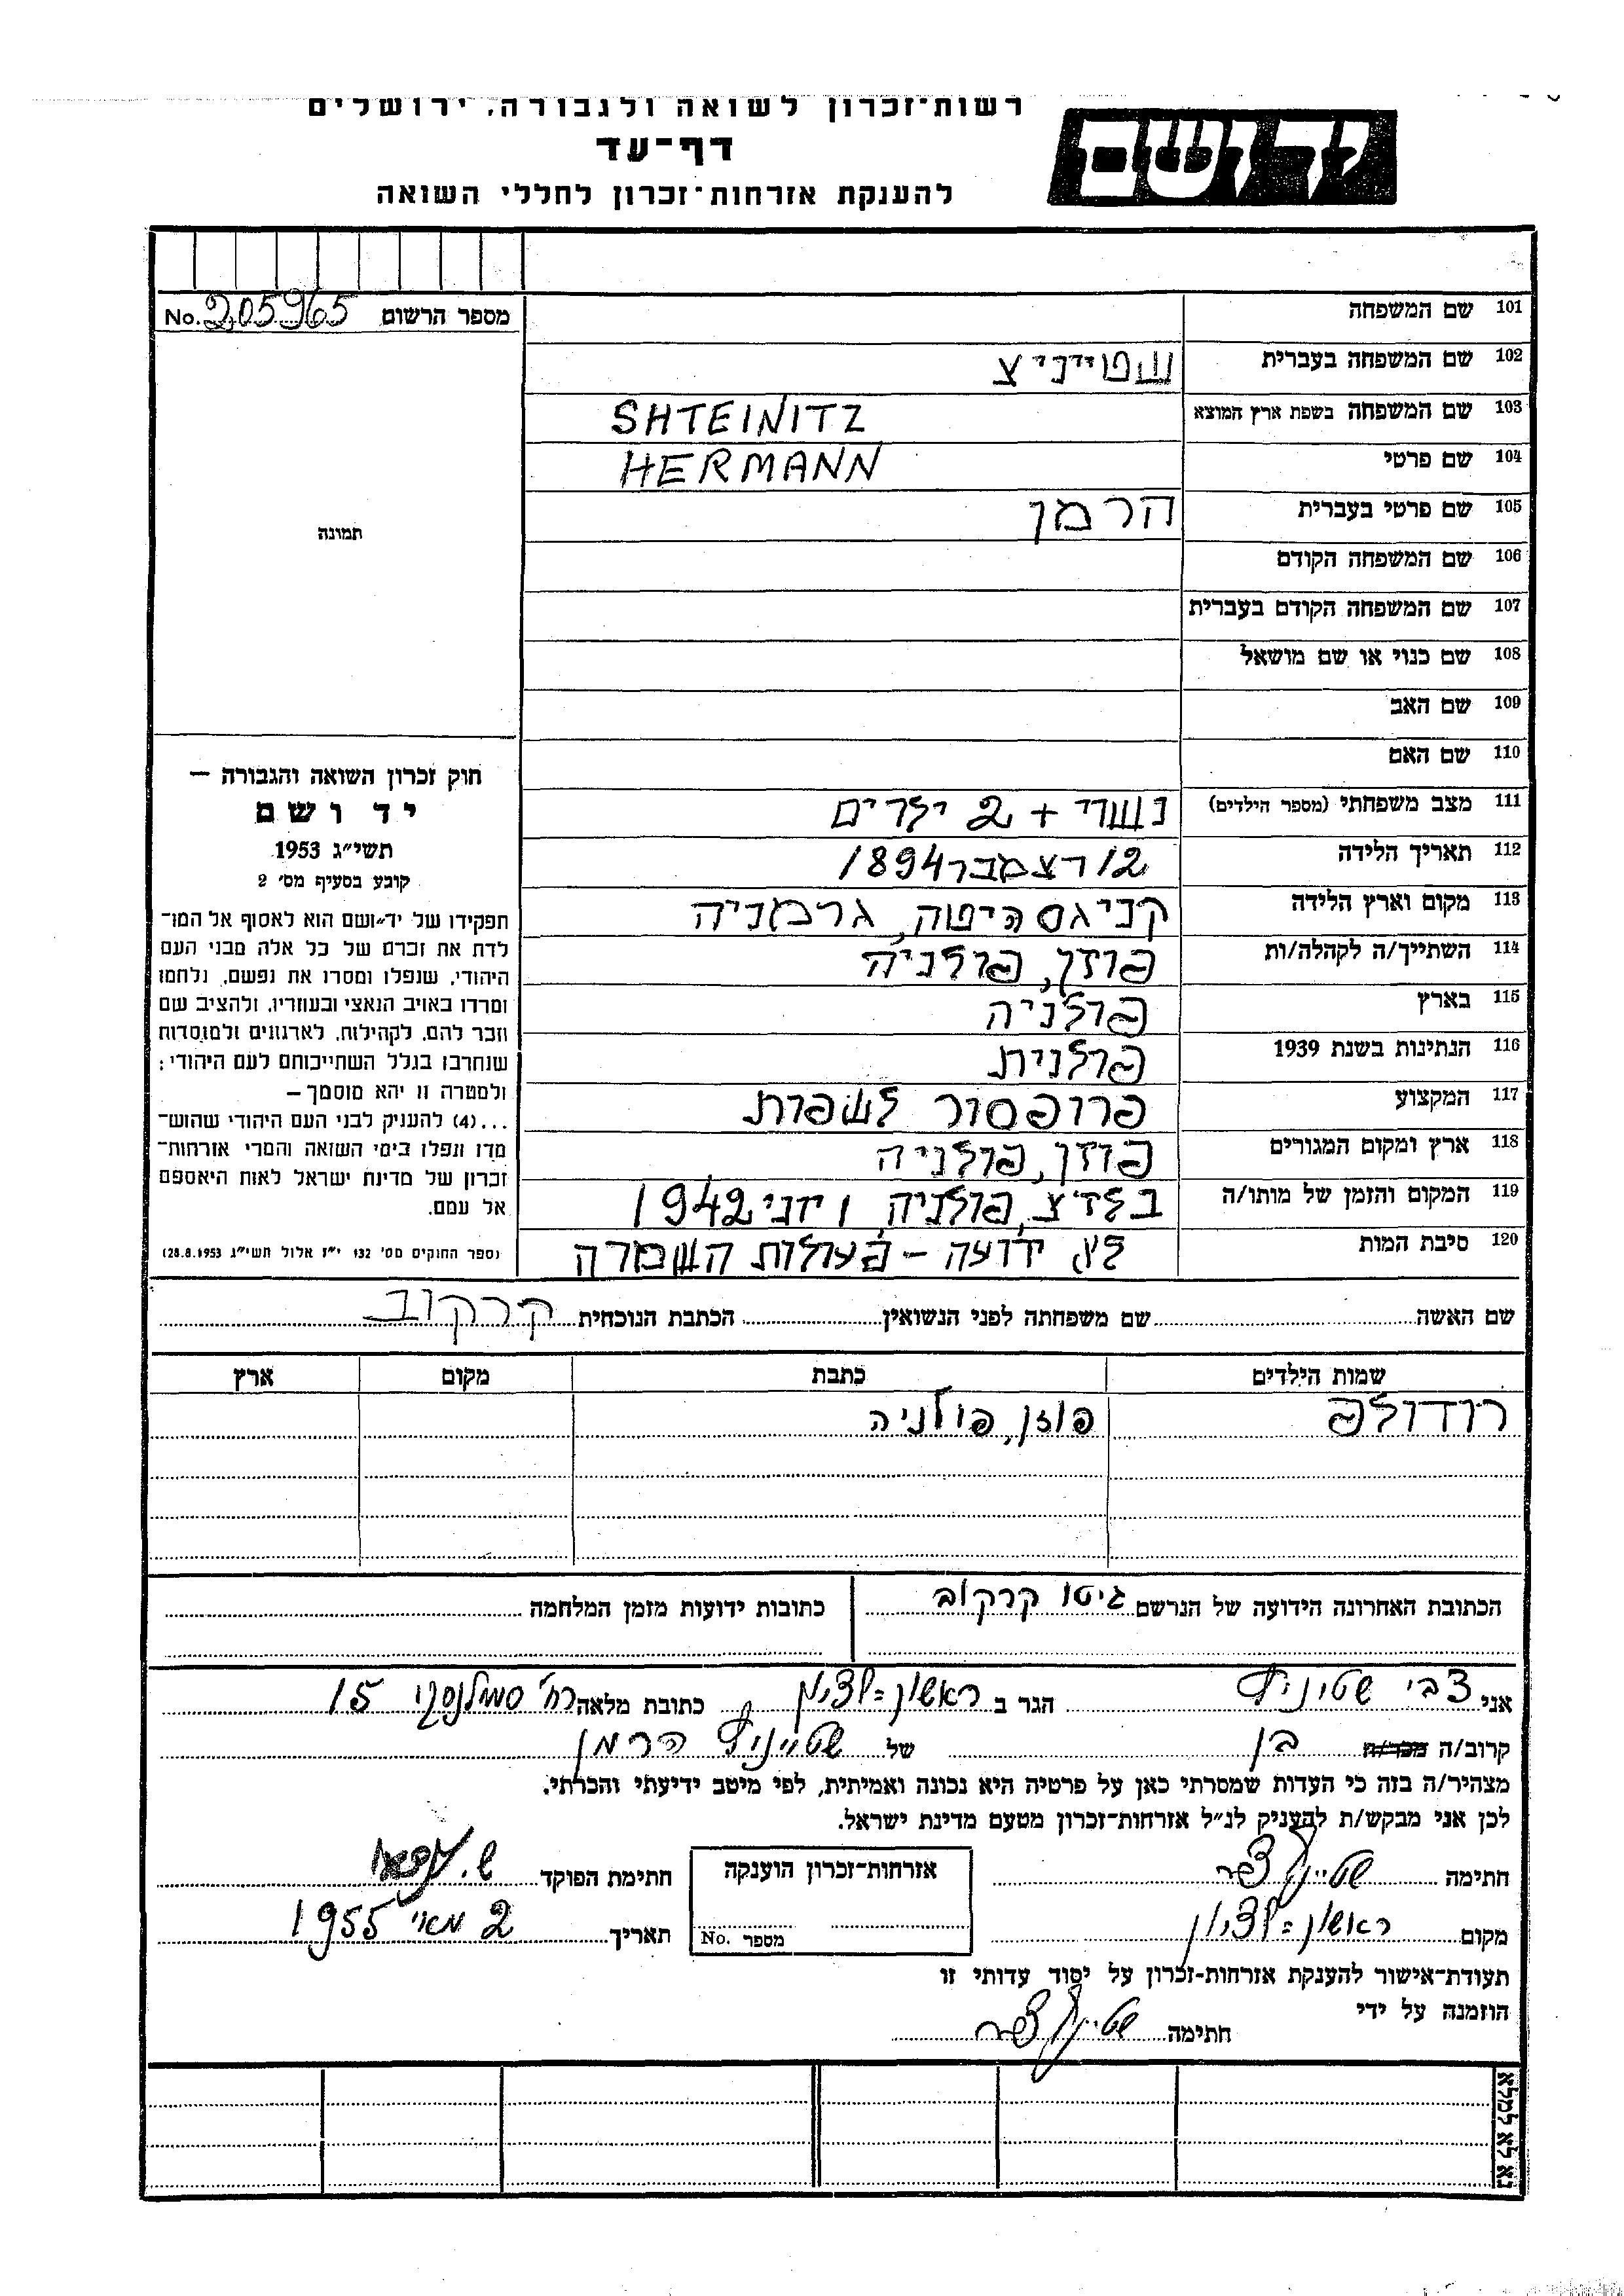 רשות-זכרון לשואה ולגבורה, ירושלים
יד ושם
דף-עד
להענקת אזרחות-זכרון לחללי השואה
מספר הרשום No. 205965
תמונה
101 שם המשפחה
102 שם המשפחה בעברית שטייניצ
103 שם המשפחה בשפת ארץ המוצא SHTEINITZ
104 שם פרטי HERMANN
105 שם פרטי בעברית הרמן
106 שם המשפחה הקודם
107 שם המשפחה הקודם בעברית
108 שם כנוי או שם מושאל
109 שם האב
110 שם האם
111 מצב משפחתי (מספר הילדים) נשוי + 2 ילדים
112 תאריך הלידה 12 דצמבר 1894
113 מקום וארץ הלידה קניגסהיטה, גרמניה
114 השתייך/ה לקהלה/ות פוזן, פולניה
115 בארץ פולניה
116 הנתינות בשנת 1939 פולנית
117 המקצוע פרופסור לשפות
118 ארץ ומקום המגורים פוזן, פולניה
119 המקום והזמן של מותו/ה בלזצ, פולניה, 1 יוני 1942
120 סיבת המות לא ידועה - פעולות השמדה
חוק זכרון השואה והגבורה —
יד ושם
תשי״ג 1953
קובע בסעיף מס׳ 2
תפקידו של יד-ושם הוא לאסוף אל המו-
לדת את זכרם של כל אלה מבני העם
היהודי, שנפלו ומסרו את נפשם, נלחמו
ומרדו באויב הנאצי ובעוזריו, ולהציב שם
וזכר להם, לקהילות, לארגונים ולמוסדות
שנחרבו בגלל השתייכותם לעם היהודי;
ולמטרה זו יהא מוסמך —
...(4) להעניק לבני העם היהודי שהוש-
מדו ונפלו בימי השואה והמרי אזרחות-
זכרון של מדינת ישראל לאות היאספם
אל עמם.
(ספר החוקים מס׳ 132 י״ז אלול תשי״ג 28.8.1953)
שם האשה שם משפחתה לפני הנשואין הכתבת הנוכחית קרקוב
שמות הילדים כתבת מקום ארץ
רודולפ פוזן, פולניה
הכתובת האחרונה הידועה של הנרשם גיטו קרקוב כתובות ידועות מזמן המלחמה
אני צבי שטיניץ הגר ב ראשון-לציון כתובת מלאה רח׳ סמולנסקי 15
קרוב/ה מכר/ה בן של שטייניץ הרמן
מצהיר/ה בזה כי העדות שמסרתי כאן על פרטיה היא נכונה ואמיתית, לפי מיטב ידיעתי והכרתי.
לכן אני מבקש/ת להעניק לנ״ל אזרחות-זכרון מטעם מדינת ישראל.
חתימה אזרחות-זכרון הוענקה חתימת הפוקד
מקום ראשון-לציון מספר No. תאריך 2 מאי 1955
תעודת-אישור להענקת אזרחות-זכרון על יסוד עדותי זו
הוזמנה על ידי
חתימה
נא לא למלא